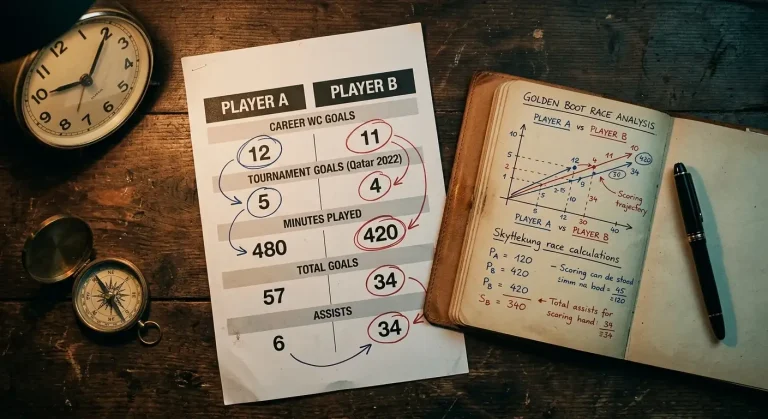 PLAYER A PLAYER B
CAREER WC GOALS
12 11
TOURNAMENT GOALS (Qatar 2022)
5 4
MINUTES PLAYED
480 420
TOTAL GOALS
57 34
ASSISTS
6 34
GOLDEN BOOT RACE ANALYSIS
PLAYER A vs PLAYER B
Scoring
trajectory
PLAYER A vs PLAYER B
Skythekung race calculations
PA = 120
PB = 420
PB = 420
SB = 340
– Scoring can de stood
= 45
=120
← Total assists for
scoring hand: 34
=34